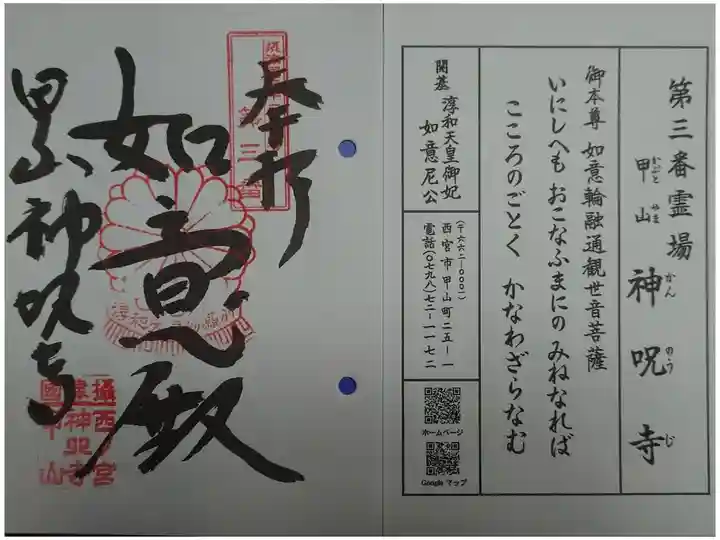 第三番霊場
甲山 神呪寺
かぶとやま かんのうじ
御本尊 如意輪融通観世音菩薩
いにしへも おこなふまにの みねなれば
こころのごとく かなわざらなむ
開基 淳和天皇御妃
如意尼公
(〒六六二-〇〇〇一)
西宮市甲山町二五-一
電話(〇七九八)七二-一一七二
ホームページ
Google マップ
奉拝
如意殿
甲山 神呪寺
三番
攝西宮
神呪寺
國甲山